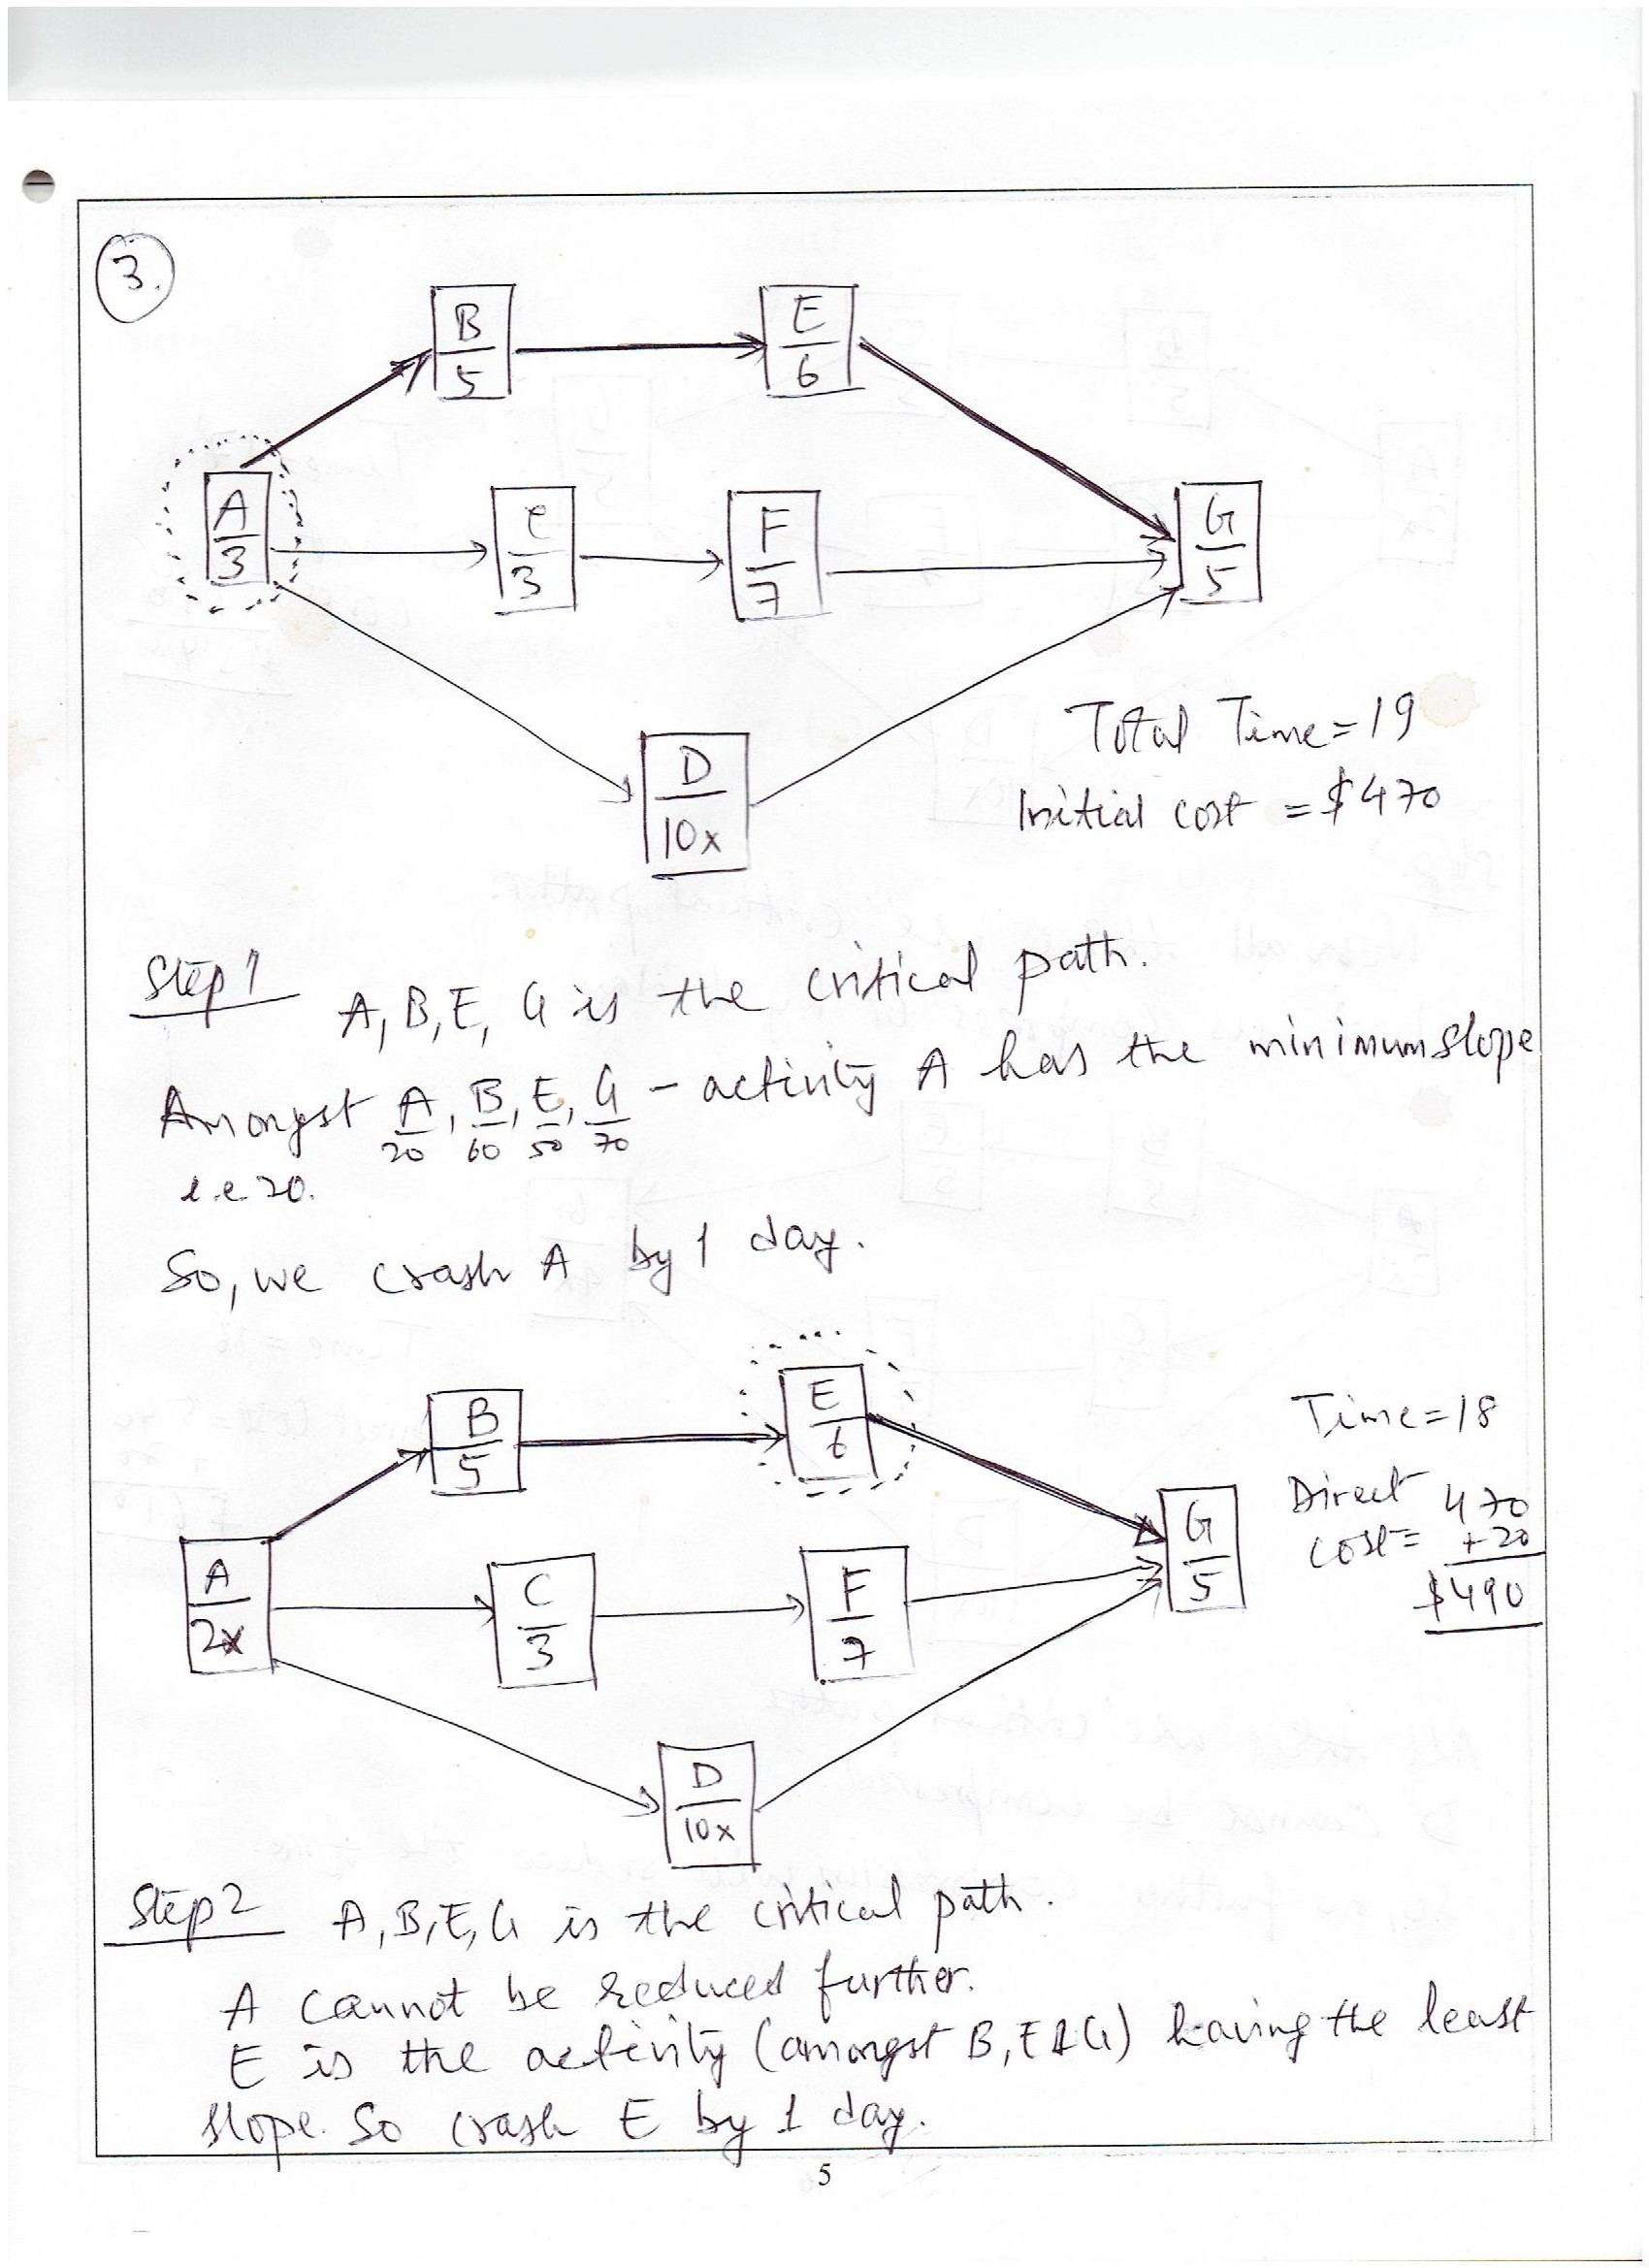 3.
B
5
E
6
A
3
C
3
F
7
G
5
D
10x
Total Time = 19
Initial cost = $470
Step 1
A, B, E, G is the critical path.
Amongst A, B, E, G - activity A has the minimum slope
20 60 50 70
i.e 20.
So, we crash A by 1 day.
B
5
E
6
Time = 18
Direct 470
cost = +20
$490
A
2x
C
3
F
7
G
5
D
10x
Step 2
A, B, E, G is the critical path.
A cannot be reduced further.
E is the activity (amongst B, E & G) having the least
slope. So crash E by 1 day.
5